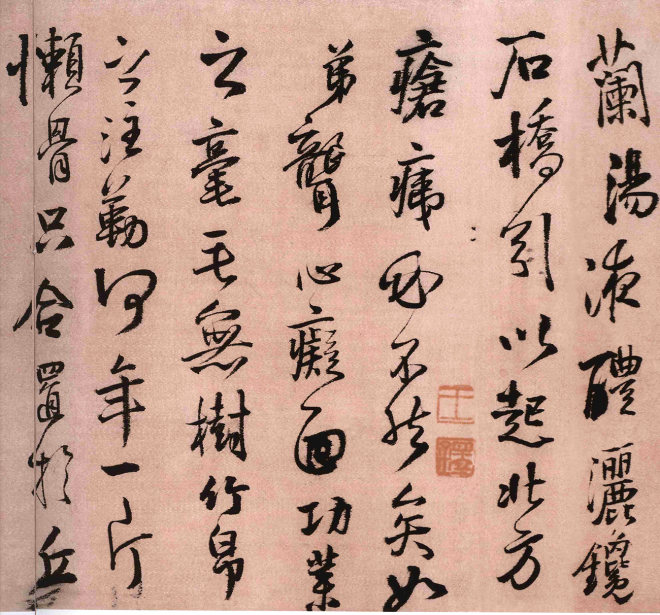 蘭湯液醴灑鑱
石橋引以起方
瘡痍不矣如
弟聾心癡面功業
之毫毛無樹竹帛
之注勒何年一片
懶骨只合置於丘
王鐸